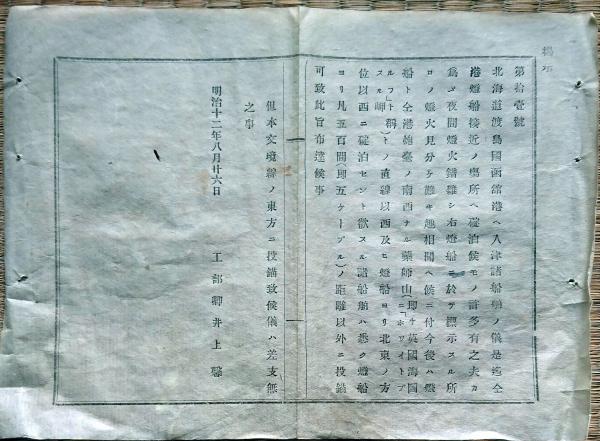 揭示
第拾壹號
北海道渡島國函館港ヘ入津諸船舶ノ儀是迄仝
港燈船接近ノ場所ヘ碇泊候モノ許多有之夫カ
爲メ夜間燈火錯雜シ右燈船ニ於テ標示スル所
ロノ燈火見分ケ難キ趣相聞ヘ候ニ付今後ハ燈
船ト仝港砲臺ノ南西ナル藥師山(即チ英國海圖
ニ「ホワイトブルフ」ト稱スル岬)トノ直線以西及ヒ燈船ヨリ北東ノ方
位以西ニ碇泊セント欲スル諸船舶ハ悉ク燈船
ヨリ凡五百間(即五ケーブル)ノ距離以外ニ投錨
可致此旨布達候事
但本文境線ノ東方ニ投錨致候儀ハ差支無
之事
明治十二年八月廿六日
工部卿井上馨